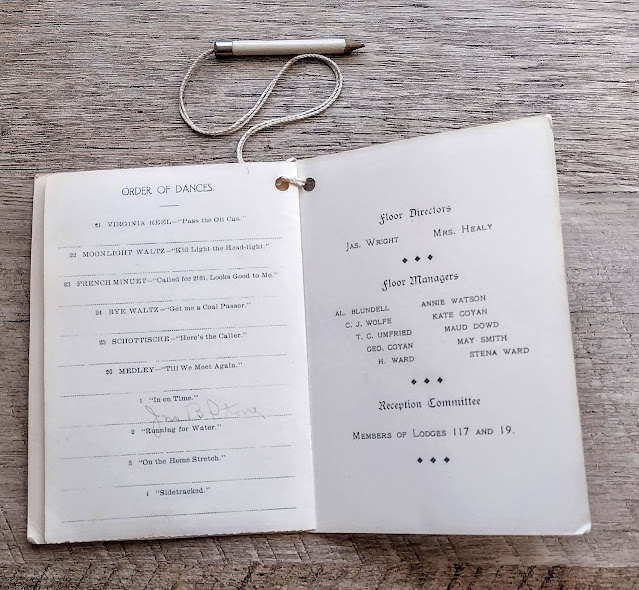 ORDER OF DANCES.
21 VIRGINIA REEL—"Pass the Oil Can."
22 MOONLIGHT WALTZ—"Kid Light the Head-light."
23 FRENCH MINUET—"Called for 2161, Looks Good to Me."
24 RYE WALTZ—"Get me a Coal Passer."
25 SCHOTTISCHE—"Here's the Caller."
26 MEDLEY—"Till We Meet Again."
1 "In on Time."
2 "Running for Water."
3 "On the Home Stretch."
4 "Sidetracked."
Floor Directors
JAS. WRIGHT MRS. HEALY
Floor Managers
AL. BLUNDELL ANNIE WATSON
C. J. WOLFE KATE COYAN
T. C. UMFRIED MAUD DOWD
GEO. COYAN MAY SMITH
H. WARD STENA WARD
Reception Committee
MEMBERS OF LODGES 117 AND 19.